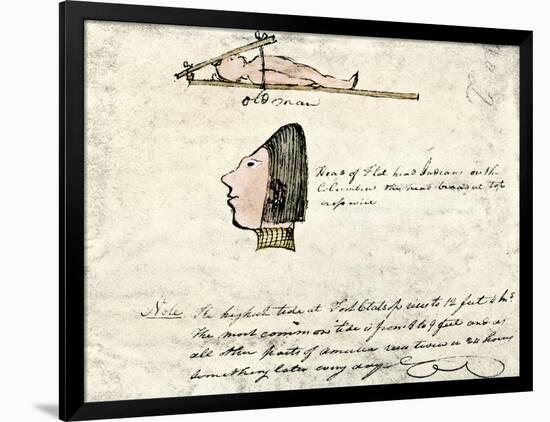 old man
Head of Flat head Indians on the
Columbia this head broad at Top
crosswise
Note The highest tide at Fort Clatsop rises to 12 feet 4 Ins
The most common tide is from 8 to 9 feet and as
all other parts of America rises twice in 24 hours
something later every day